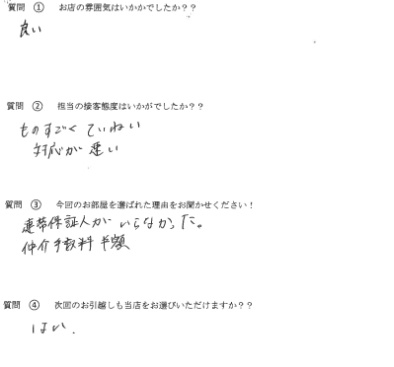 質問 ① お店の雰囲気はいかがでしたか??
良い
質問 ② 担当の接客態度はいかがでしたか??
ものすごく ていねい
対応が 速い
質問 ③ 今回のお部屋を選ばれた理由をお聞かせください!
連帯保証人が いらなかった。
仲介手数料 半額
質問 ④ 次回のお引越しも当店をお選びいただけますか??
はい.